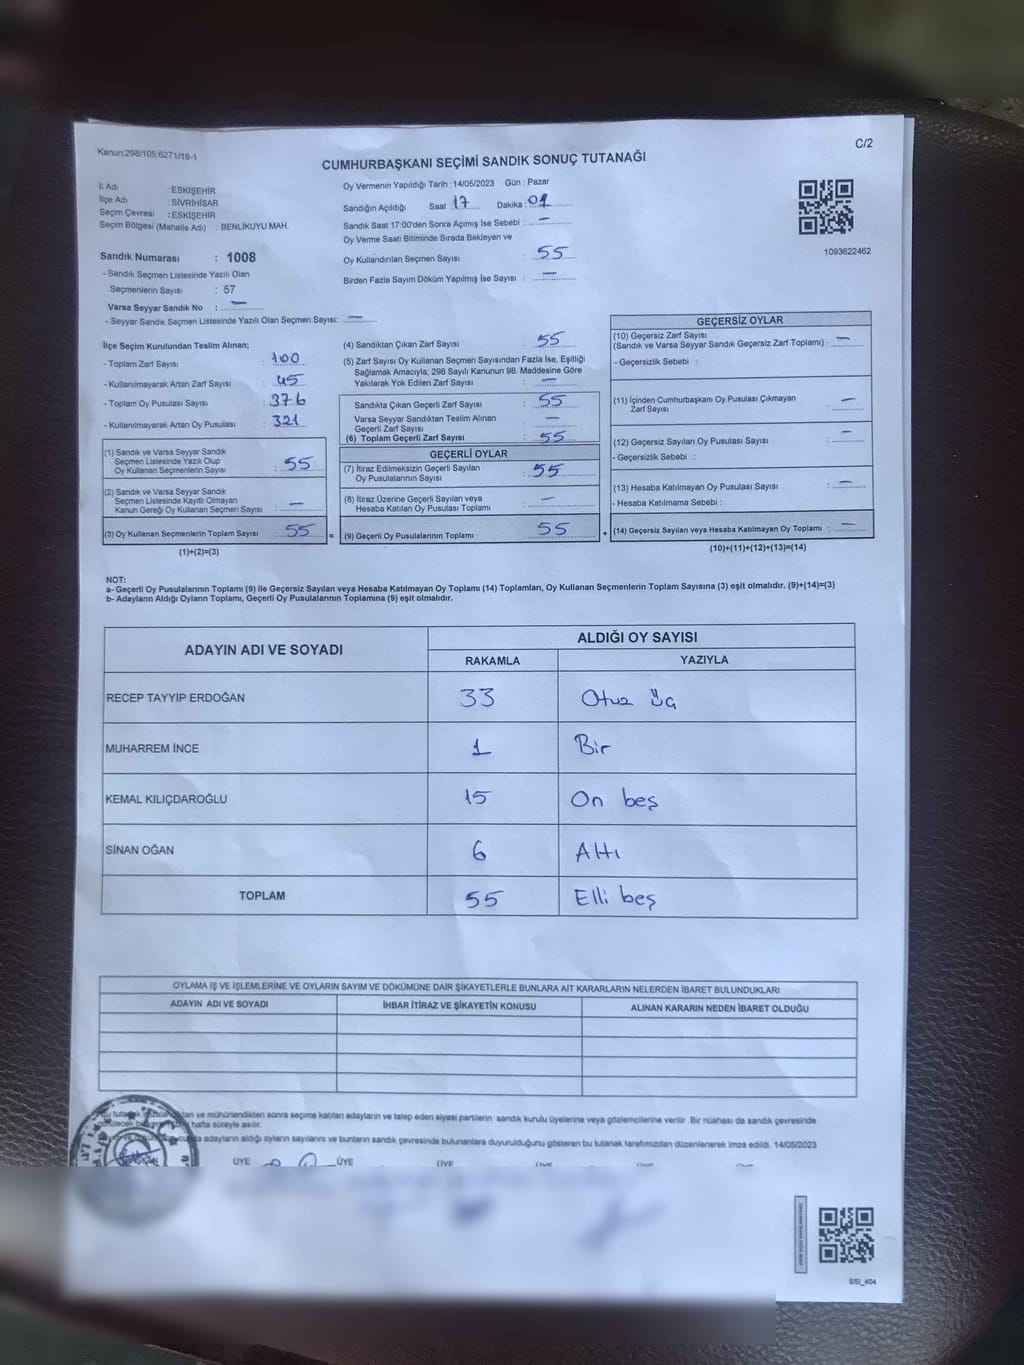 Kanun:298/105;6271/18-1
C/2
CUMHURBAŞKANI SEÇİMİ SANDIK SONUÇ TUTANAĞI
İl Adı : ESKİŞEHİR
İlçe Adı : SİVRİHİSAR
Seçim Çevresi : ESKİŞEHİR
Seçim Bölgesi (Mahalle Adı) : BENLİKUYU MAH.
Sandık Numarası : 1008
- Sandık Seçmen Listesinde Yazılı Olan
Seçmenlerin Sayısı : 57
Varsa Seyyar Sandık No : —
- Seyyar Sandık Seçmen Listesinde Yazılı Olan Seçmen Sayısı: —
Oy Vermenin Yapıldığı Tarih :14/05/2023 Gün : Pazar
Sandığın Açıldığı Saat 17 Dakika : 01
Sandık Saat 17:00'den Sonra Açımış İse Sebebi : —
Oy Verme Saati Bitiminde Sırada Bekleyen ve
Oy Kullandırılan Seçmen Sayısı : 55
Birden Fazla Sayım Döküm Yapılmış İse Sayısı : —
1093622462
İlçe Seçim Kurulundan Teslim Alınan;
- Toplam Zarf Sayısı : 100
- Kullanılmayarak Artan Zarf Sayısı : 45
- Toplam Oy Pusulası Sayısı : 376
- Kullanılmayarak Artan Oy Pusulası : 321
(1) Sandık ve Varsa Seyyar Sandık
Seçmen Listesinde Yazılı Olup
Oy Kullanan Seçmenlerin Sayısı : 55
(2) Sandık ve Varsa Seyyar Sandık
Seçmen Listesinde Kayıtlı Olmayan
Kanun Gereği Oy Kullanan Seçmen Sayısı : —
(3) Oy Kullanan Seçmenlerin Toplam Sayısı : 55 =
(1)+(2)=(3)
(4) Sandıktan Çıkan Zarf Sayısı : 55
(5) Zarf Sayısı Oy Kullanan Seçmen Sayısından Fazla İse, Eşitliği
Sağlamak Amacıyla; 298 Sayılı Kanunun 98. Maddesine Göre
Yakılarak Yok Edilen Zarf Sayısı : —
Sandıkta Çıkan Geçerli Zarf Sayısı : 55
Varsa Seyyar Sandıktan Teslim Alınan
Geçerli Zarf Sayısı : —
(6) Toplam Geçerli Zarf Sayısı : 55
GEÇERLİ OYLAR
(7) İtiraz Edilmeksizin Geçerli Sayılan
Oy Pusulalarının Sayısı : 55
(8) İtiraz Üzerine Geçerli Sayılan veya
Hesaba Katılan Oy Pusulası Toplamı : —
(9) Geçerli Oy Pusulalarının Toplamı : 55 +
GEÇERSİZ OYLAR
(10) Geçersiz Zarf Sayısı
(Sandık ve Varsa Seyyar Sandık Geçersiz Zarf Toplamı) : —
- Geçersizlik Sebebi :
(11) İçinden Cumhurbaşkanı Oy Pusulası Çıkmayan
Zarf Sayısı : —
(12) Geçersiz Sayılan Oy Pusulası Sayısı : —
- Geçersizlik Sebebi :
(13) Hesaba Katılmayan Oy Pusulası Sayısı : —
- Hesaba Katılmama Sebebi :
(14) Geçersiz Sayılan veya Hesaba Katılmayan Oy Toplamı : —
(10)+(11)+(12)+(13)=(14)
NOT:
a- Geçerli Oy Pusulalarının Toplamı (9) ile Geçersiz Sayılan veya Hesaba Katılmayan Oy Toplamı (14) Toplamları, Oy Kullanan Seçmenlerin Toplam Sayısına (3) eşit olmalıdır. (9)+(14)=(3)
b- Adayların Aldığı Oyların Toplamı, Geçerli Oy Pusulalarının Toplamına (9) eşit olmalıdır.
ADAYIN ADI VE SOYADI ALDIĞI OY SAYISI
RAKAMLA YAZIYLA
RECEP TAYYİP ERDOĞAN 33 Otuz üç
MUHARREM İNCE 1 Bir
KEMAL KILIÇDAROĞLU 15 On beş
SİNAN OĞAN 6 Altı
TOPLAM 55 Elli beş
OYLAMA İŞ VE İŞLEMLERİNE VE OYLARIN SAYIM VE DÖKÜMÜNE DAİR ŞİKAYETLERLE BUNLARA AİT KARARLARIN NELERDEN İBARET BULUNDUKLARI
ADAYIN ADI VE SOYADI İHBAR İTİRAZ VE ŞİKAYETİN KONUSU ALINAN KARARIN NEDEN İBARET OLDUĞU
ve mühürlendikten sonra seçime katılan adayların ve talep eden siyasi partilerin sandık kurulu üyelerine veya gözlemcilerine verilir. Bir nüshası da sandık çevresinde
hafta süreyle asılır.
adayların aldığı oyların sayılarını ve bunların sandık çevresinde bulunanlara duyurulduğunu gösteren bu tutanak tarafımızdan düzenlenerek imza edildi. 14/05/2023
ÜYE ÜYE ÜYE
SSI_404